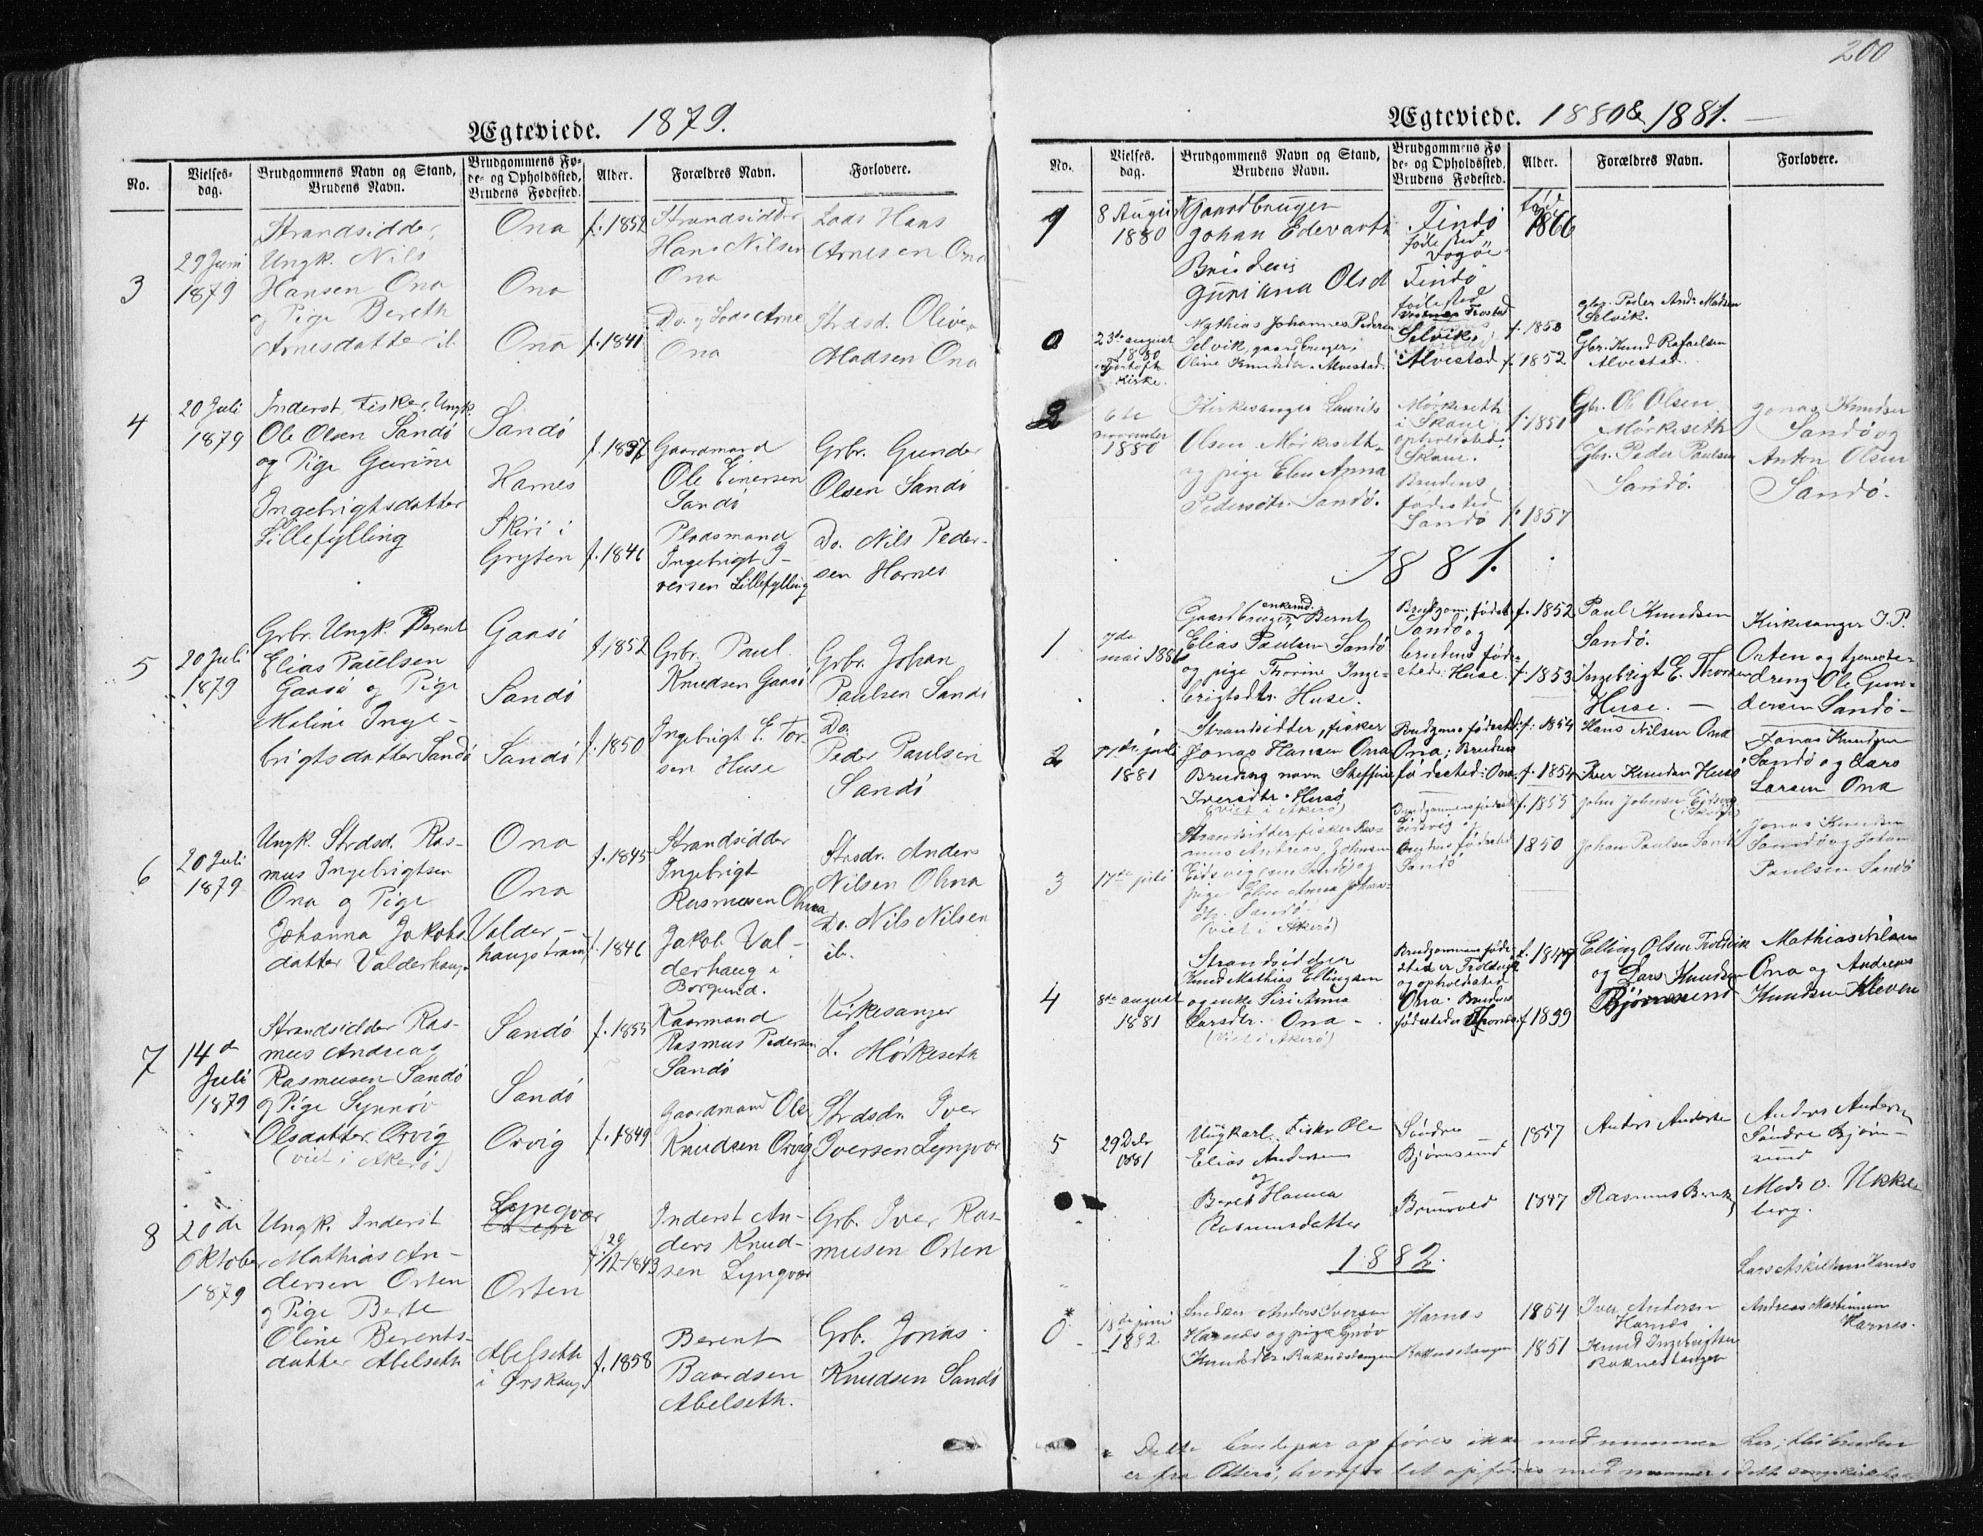 200
Ægteviede. 1879.
No.
Vielses-
dag.
Brudgommens Navn og Stand,
Brudens Navn.
Brudgommens Fø-
de- og Opholdssted,
Brudens Fødested.
Alder.
Forældres Navn.
Forlovere.
3
29 Juni
1879
Strandsidder,
Ungk. Nils
Hansen Ona
og Pige Bereth
Arnesdatter ib.
Ona
Ona
Ona
f. 1852
f. 1841
Strandsidder
Hans Nilsen
Ona
Do. og Lods Arne
Ona
Lods Hans
Arnesen Ona
Strdsd. Oliver
Madsen Ona
4
20 Juli
1879
Inderst, Fisker, Ungk.
Ole Olsen Sandø
og Pige Gurine
Ingebrigtsdatter
Lillefylling
Sandø
Harnes
Skiri i
Gryten
f. 1857
f. 1846
Gaardmand
Ole Einersen
Sandø
Pladsmand
Ingebrigt I-
versen Lillefylling
Grbr. Gunder
Olsen Sandø
Do. Nils Peder-
sen Harnes
5
20 Juli
1879
Grbr. Ungk. Berent
Elias Paulsen
Gaasø og Pige
Maline Inge-
brigtsdatter Sandø
Gaasø
Sandø
Sandø
f. 1852
f. 1850
Grbr. Paul
Knudsen Gaasø
Ingebrigt E. Tor-
sen Huse
Grbr. Johan
Paulsen Sandø
Do.
Peder Paulsen
Sandø
6
20 Juli
1879
Ungk. Strdsd. Ras-
mus Ingebrigtsen
Ona og Pige
Johanna Jakobs
datter Valderhaug
Ona
Ona
Valder-
haugstrand
f. 1845
f. 1846
Strandsidder
Ingebrigt
Rasmusen Ohna
Jakob Val-
derhaug i
Borgund.
Strdsdr. Anders
Nilsen Ohna
Do. Nils Nilsen
ib.
7
14de
Juli
1879
Strandsidder Ras-
mus Andreas
Rasmusen Sandø
og Pige Synnøv
Olsdatter Orvig
(viet i Akerø)
Sandø
Sandø
Orvig
f. 1855
f. 1849
Kaarmand
Rasmus Pedersen
Sandø
Gaardmand Ole
Knudsen Orvig
Kirkesanger
L. Mørkeseth
Strdsdr. Iver
Iversen Lyngvær
8
20de
Oktober
1879
Ungk. Inderst
Mathias An-
dersen Orten
og Pige Berte
Oline Berents-
datter Abelseth
Lyngvær
Orten
Abelseth
i Ørskoug
f. 29/12 1843
f. 1858
Inderst An-
ders Knud-
sen Lyngvær
Berent
Baardsen
Abelseth.
Grb. Iver Ras-
musen Orten
Grb. Jonas
Knudsen Sandø
Ægteviede. 1880 & 1881.
No.
Vielses-
dag.
Brudgommens Navn og Stand,
Brudens Navn.
Brudgommens Fø-
de- og Opholdssted,
Brudens Fødested.
Alder.
Forældres Navn.
Forlovere.
1
8 August
1880
Gaardbruger
Johan Edevarth
Brudens
Guriana Olsd
Findø
fødested
Vogøe
Findø
fødested
født
1866
0
23de august
1880
Kirke.
Mathias Johannes Pedersen
Selvik, gaardbruger;
Oline Knudsdtr. Alvestad
Selvik
Alvestad
f. 1850
f. 1852
gbr. Peder Andr. Madsen
Selvik.
Gbr. Knud Rafaelsen
Alvestad.
2
6te
november
1880
Kirkesanger Laurits
Olsen Mørkeseth
og pige Elen Anna
Pedersdtr. Sandø.
Mørkeseth
i Skaue
opholdsted:
Skaue.
Brudens
fødested
Sandø
f. 1851
f. 1857
Gbr. Ole Olsen
Mørkeseth
Gbr. Peder Paulsen
Sandø.
Jonas Knudsen
Sandø og
Anton Olsen
Sandø.
1881.
1
7de
mai 1881
Gaardbruger enkemd. Bernt
Elias Paulsen Sandø
og pige Thorine Inge-
brigtsdtr. Huse.
Brudgom. fødest.
Sandø og
brudens føde-
sted: Huse.
f. 1852
f. 1853
Paul Knudsen
Sandø.
Ingebrigt E. Thorsen
Huse. —
Kirkesanger I. P.
Orten og tjeneste-
dreng Ole Gun-
dersen Sandø-
2
17de juli
1881
Strandsidder, fisker
Jonas Hansen Ona
Brudens navn Steffine
Iversdtr. Husø
(viet i Akerø)
Brudgoms fødested:
Ona; Brudens
fødested: Ona
f. 1854
f. 1854
Hans Nilsen Ona
Iver Knudsen Husø
Jonas Knudsen
Sandø og Lars
Larsen Ona
3
17de juli
Strandsidder, fisker Ras-
mus Andreas Johnsen
Eidsvig (om Sandø) og
pige Elen Anna Johan-
dtr. Sandø
(viet i Akerø)
Brudgommens fødested
Eidsvig og
Brudens fødested
Sandø
f. 1855
1850
John Johnsen Eidsvig
Johan Paulsen Sandø
Jonas Knudsen
Sandø og Johan
Paulsen Sandø
4
8de august
1881
Strandsidder
Knud Mathias Ellingsen
og enke Siri Anna
Larsdtr. Ona -
(viet i Akerø)
Brudgommens føde-
sted er Troldvik
og opholdsted
Ona. Brudens
fødested er
f. 1847
f. 1839
Elling Olsen Troldvik
og Lars Knudsen
Bjørnsund
Mathias Nilsen
Ona og Andreas
Knudsen Kleven
5
29 Dcbr
1881
Ungkarl, Fisker Ole
Elias Andersen
og
Beret Hanna
Rasmusdatter
Søndre
Bjørnsund
Brunvold
1857
1847
Anders Andersen
Rasmus Berntsen
Anders Andersen
Søndre Bjørn-
sund
Mads O. Ukkel-
berg.
1882.
0*
18de juni
1882.
Snedker Anders Iversen
Harnæs og pige Gnøv
Knudsdtr. Raknestangen
Harnæs
Raknestangen
1854
1851
Iver Andersen
Harnæs.
Knud Ingebrigtsen
Raknestangen
Lars Askildsen Harnæs
Andreas Martinussen
Harnes.
* Dette brudepar opføres ikke med nummer her, thi bruden
er fra Otterø, hvorfor det opføres med nummer i dette sogns kirkebog